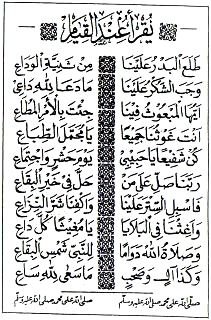 يُقْرَأُ عِنْدَ الْقِيَامِ
طَلَعَ الْبَدْرُ عَلَيْنَا مِنْ ثَنِيَّةِ الْوَدَاعِ
وَجَبَ الشُّكْرُ عَلَيْنَا مَا دَعَا لِلّٰهِ دَاعِ
أَيُّهَا الْمَبْعُوثُ فِينَا جِئْتَ بِالْأَمْرِ الْمُطَاعِ
أَنْتَ غَوْثُنَا جَمِيعًا يَا مُجَمَّلَ الطِّبَاعِ
كُنْ شَفِيعًا يَا حَبِيبِي يَوْمَ حَشْرٍ وَاجْتِمَاعِ
رَبَّنَا صَلِّ عَلَى مَنْ حَلَّ فِي خَيْرِ الْبِقَاعِ
فَاسْبِلِ السِّتْرَ عَلَيْنَا وَاكْفِنَا شَرَّ النِّزَاعِ
وَأَغِثْنَا فِي الْبَلَايَا يَا مُغِيثًا كُلَّ دَاعِ
وَصَلَاةُ اللّٰهِ دَوَامًا لِلنَّبِيِّ شَمْسِ الْبِقَاعِ
وَكَذَا آلٍ وَصَحْبٍ مَا سَعَى لِلّٰهِ سَاعِ
صلى الله على محمد صلى الله عليه وسلم صلى الله على محمد صلى الله عليه وسلم